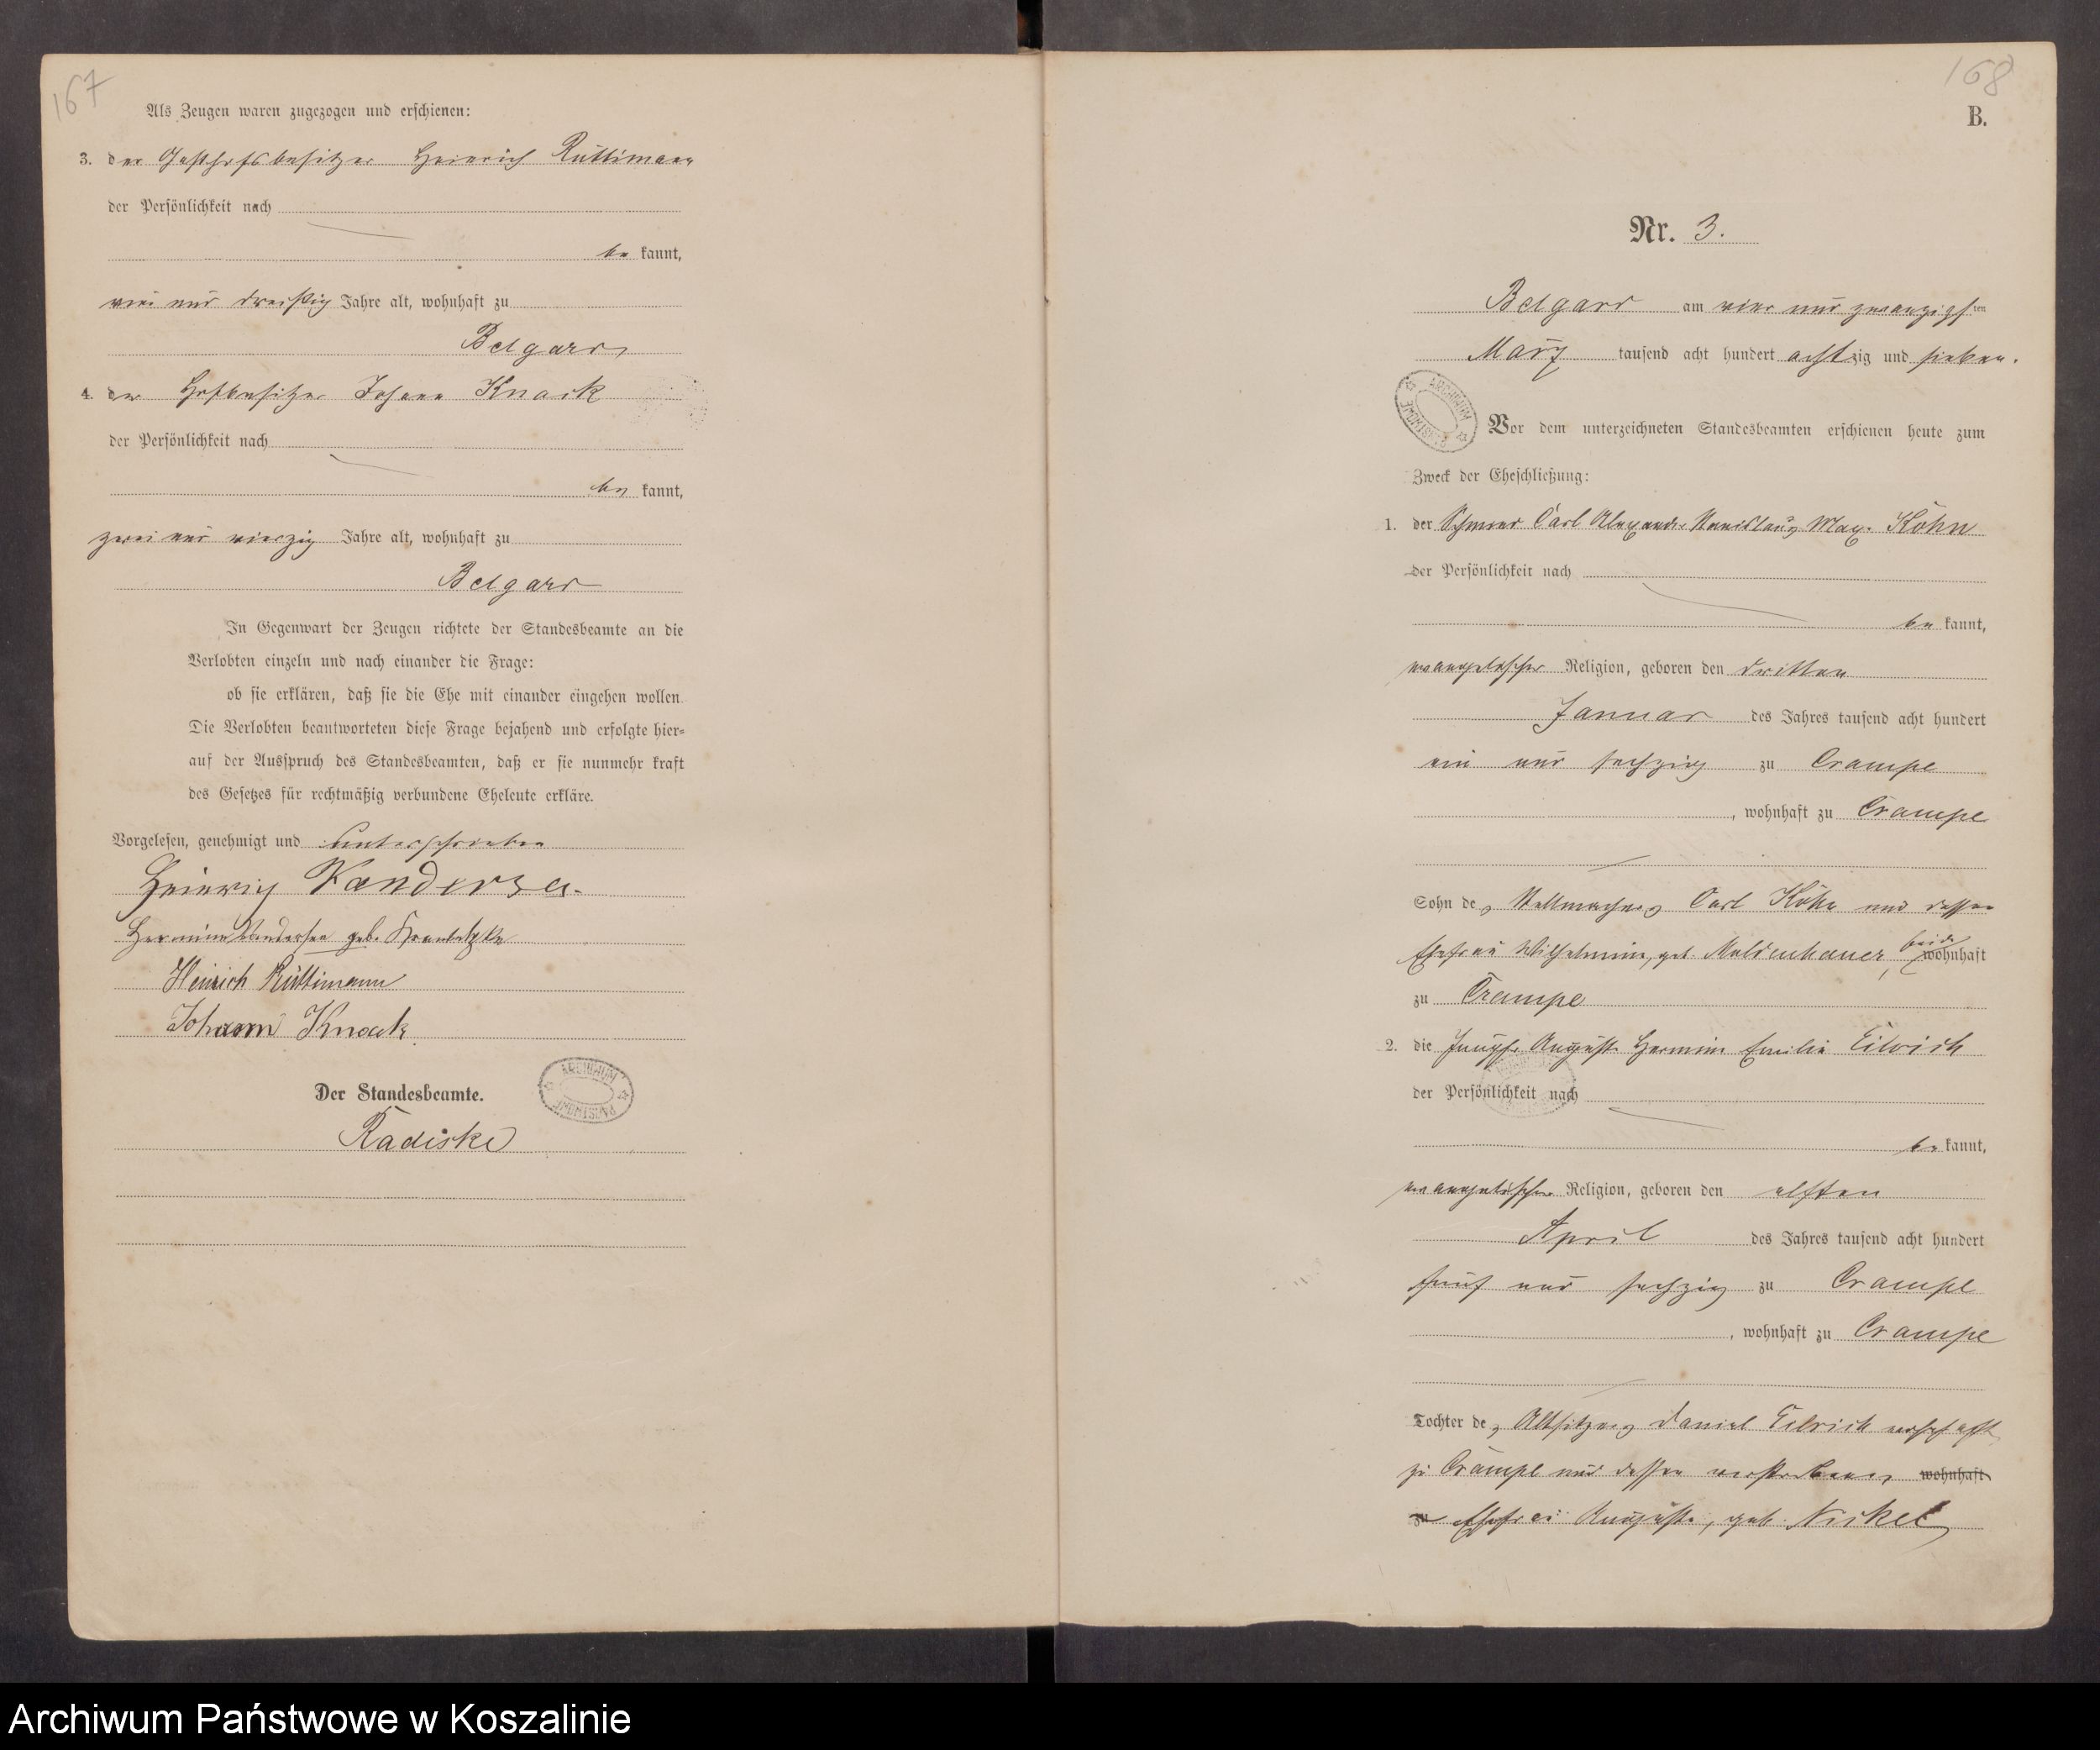 167
Als Zeugen waren zugezogen und erschienen:
3. der Gasthofsbesitzer Heinrich Rüttimann
der Persönlichkeit nach
be kannt,
vier und dreißig Jahre alt, wohnhaft zu
Belgard
4. der Hofbesitzer Johann Knack
der Persönlichkeit nach
be kannt,
zwei und vierzig Jahre alt, wohnhaft zu
Belgard
In Gegenwart der Zeugen richtete der Standesbeamte an die
Verlobten einzeln und nach einander die Frage:
ob sie erklären, daß sie die Ehe mit einander eingehen wollen.
Die Verlobten beantworteten diese Frage bejahend und erfolgte hier-
auf der Ausspruch des Standesbeamten, daß er sie nunmehr kraft
des Gesetzes für rechtmäßig verbundene Eheleute erkläre.
Vorgelesen, genehmigt und unterschrieben
Heinrich
geb.
Heinrich Rüttimann
Johann Knack
Der Standesbeamte.
Radiske
ARCHIWUM PAŃSTWOWE
168
B.
Nr. 3.
Belgard am vier und zwanzigsten
März tausend acht hundert achtzig und sieben.
ARCHIWUM PAŃSTWOWE
Vor dem unterzeichneten Standesbeamten erschienen heute zum
Zweck der Eheschließung:
1. der Carl Alexander Max Köhn
der Persönlichkeit nach
be kannt,
evangelischer Religion, geboren den dritten
Januar des Jahres tausend acht hundert
ein und sechzig zu Crampe
, wohnhaft zu Crampe
Sohn des Stellmachers Carl Köhn und dessen
Ehefrau Wilhelmine, geb. Moldenhauer, beide wohnhaft
zu Crampe
2. die Jungfr. Auguste Hermine Emilie Eilrich
der Persönlichkeit nach
be kannt,
evangelischer Religion, geboren den elften
April des Jahres tausend acht hundert
fünf und sechzig zu Crampe
, wohnhaft zu Crampe
Tochter des Altsitzers Daniel Eilrich wohnhaft
zu Crampe und dessen verstorbenen wohnhaft
zu Ehefrau Auguste, geb. Nickel
Archiwum Państwowe w Koszalinie